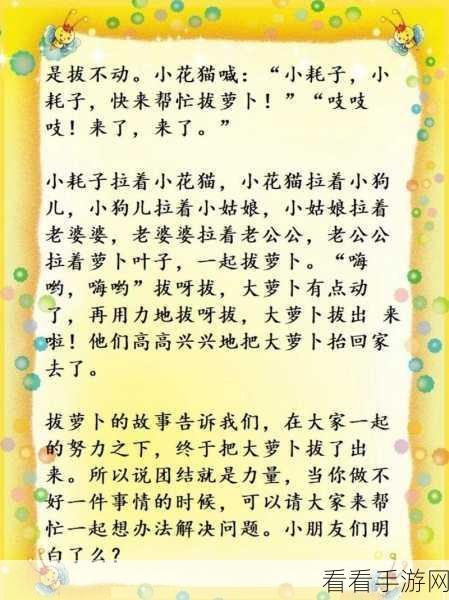 是拔不动。小花猫喊：“小耗子，小
耗子，快来帮忙拔萝卜！”“吱吱
吱！来了，来了。”
小耗子拉着小花猫，小花猫拉着小狗
儿，小狗儿拉着小姑娘，小姑娘拉着
老婆婆，老婆婆拉着老公公，老公公
拉着萝卜叶子，一起拔萝卜。“嗨
哟，嗨哟”拔呀拔，大萝卜有点动
了，再用力地拔呀拔，大萝卜拔出 来
啦！他们高高兴兴地把大萝卜抬回家
去了。
拔萝卜的故事告诉我们，在大家一起
的努力之下，终于把大萝卜拔了出
来。所以说团结就是力量，当你做不
好一件事情的时候，可以请大家来帮
忙一起想办法解决问题。小朋友们明
白了么？
看看手游网